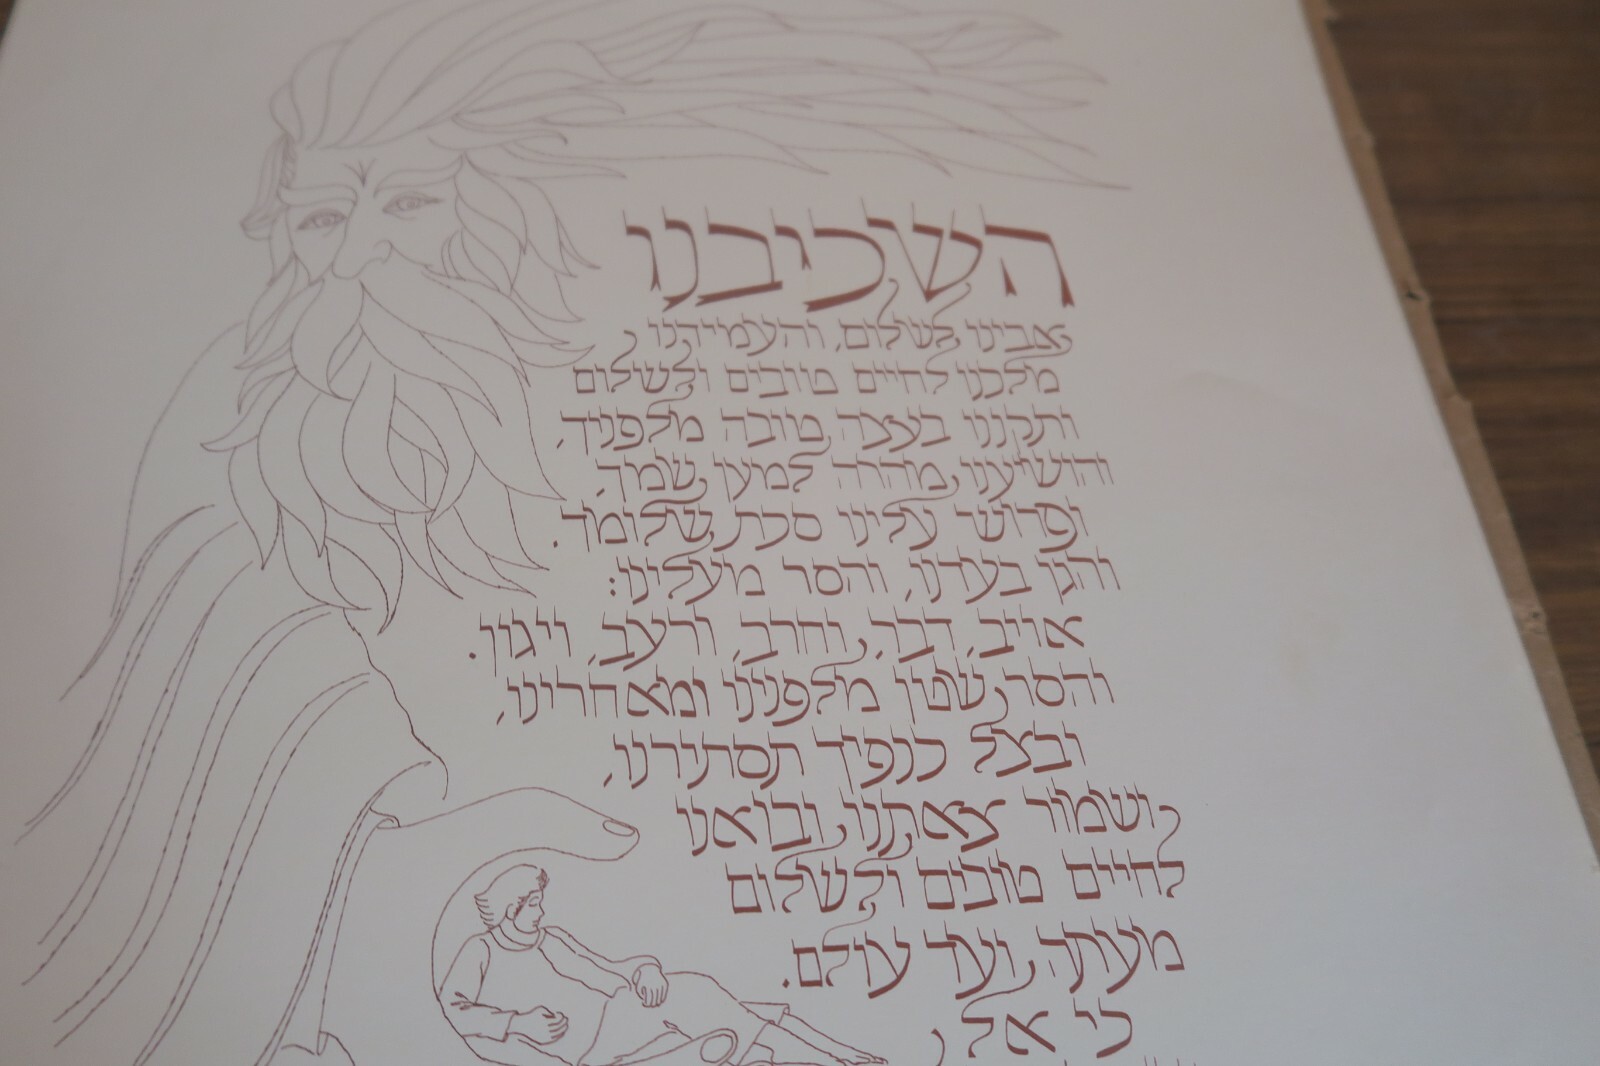 השכיבנו
אבינו לשלום, והעמידנו
מלכנו לחיים טובים ולשלום
ותקננו בעצה טובה מלפניך,
והושיענו מהרה למען שמך,
ופרוש עלינו סכת שלומך.
והגן בעדנו, והסר מעלינו:
אויב, דבר, וחרב, ורעב, ויגון.
והסר שטן מלפנינו ומאחרינו,
ובצל כנפיך תסתירנו,
ושמור צאתנו ובואנו
לחיים טובים ולשלום
מעתה ועד עולם.
כי אל